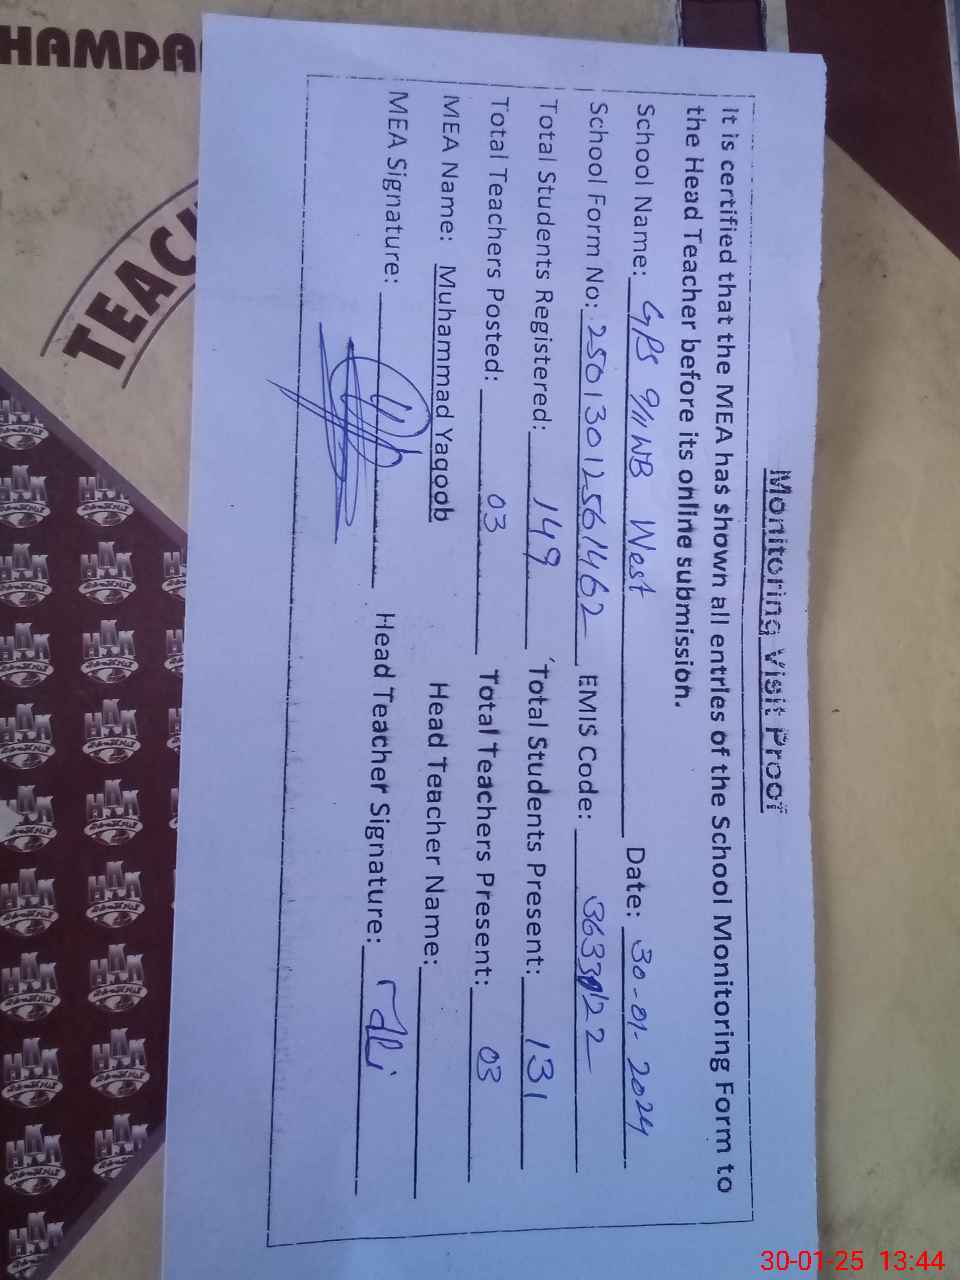 Monitoring Visit Proof
It is certified that the MEA has shown all entries of the School Monitoring Form to
the Head Teacher before its online submission.
School Name: GPS 9/11 WB West Date: 30-01-2024
School Form No: 25013012561462 EMIS Code:
Total Students Registered: 149 Total Students Present: 131
Total Teachers Posted: 03 Total Teachers Present: 03
MEA Name: Muhammad Yaqoob Head Teacher Name:
MEA Signature: Head Teacher Signature:
HAMDA
TEAC
30-01-25 13:44